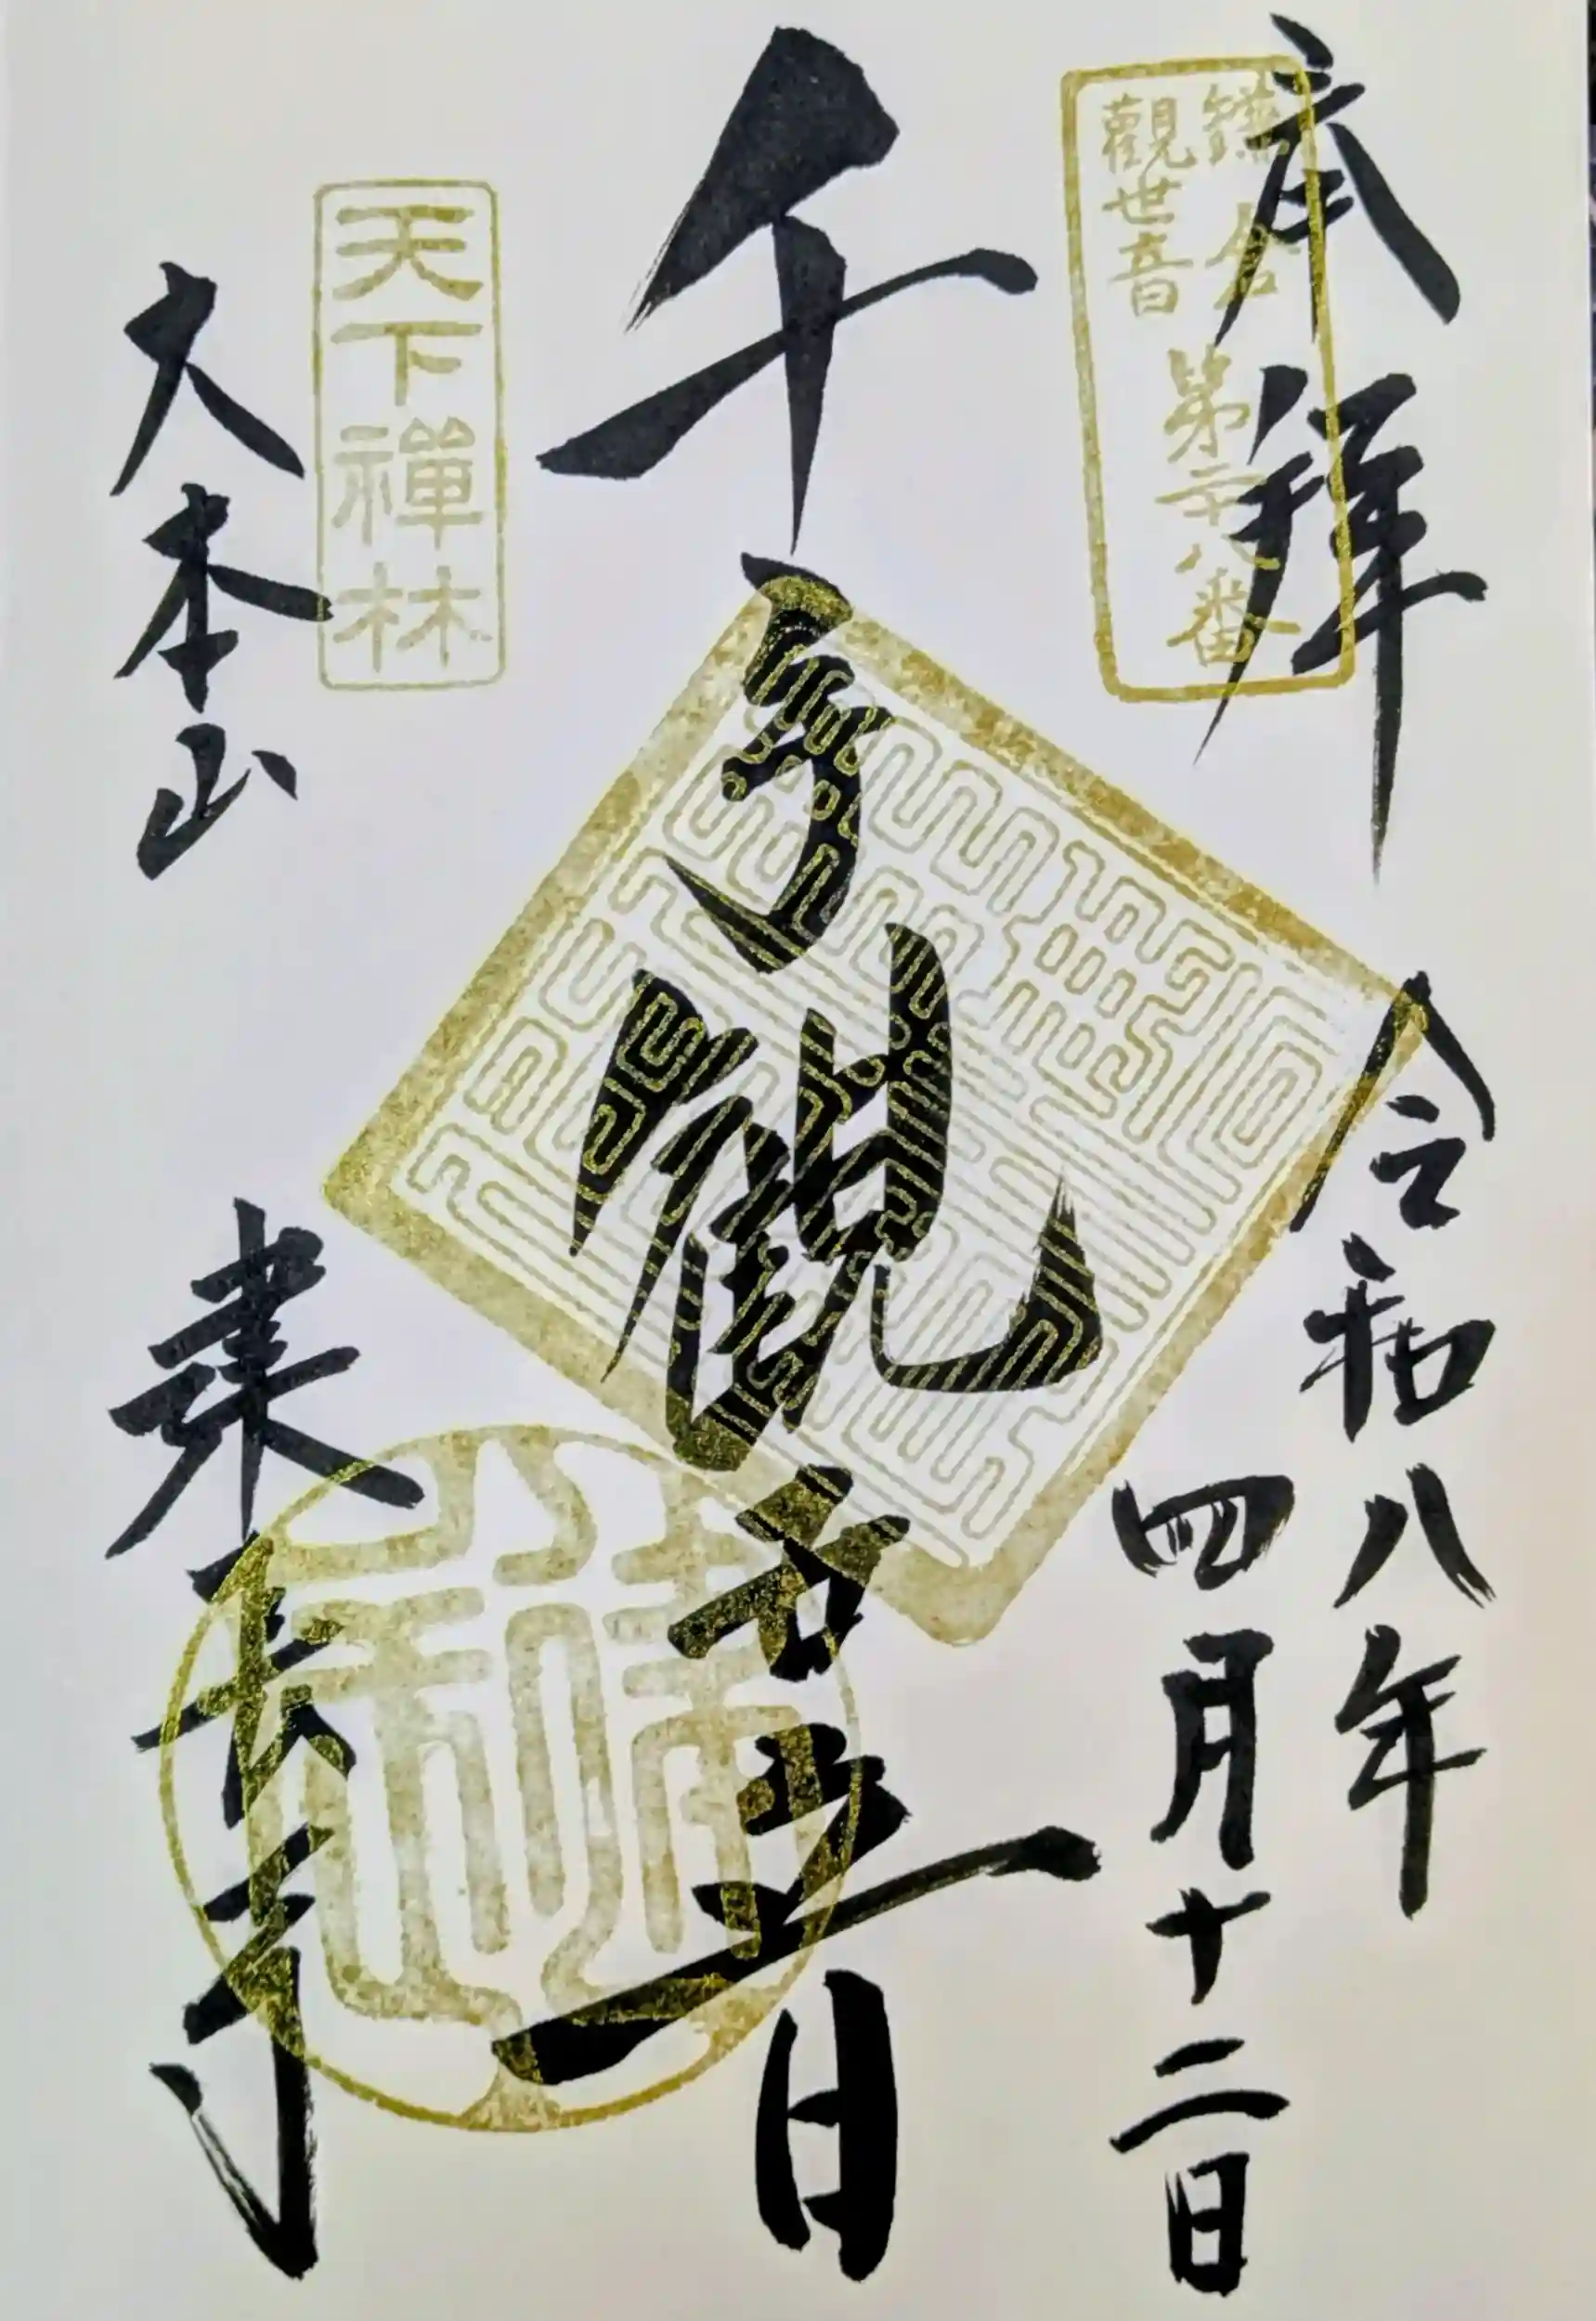 奉拝
鎌倉
観世音
第二十八番
令和八年
四月十二日
千手観世音
天下禪林
大本山
建長寺